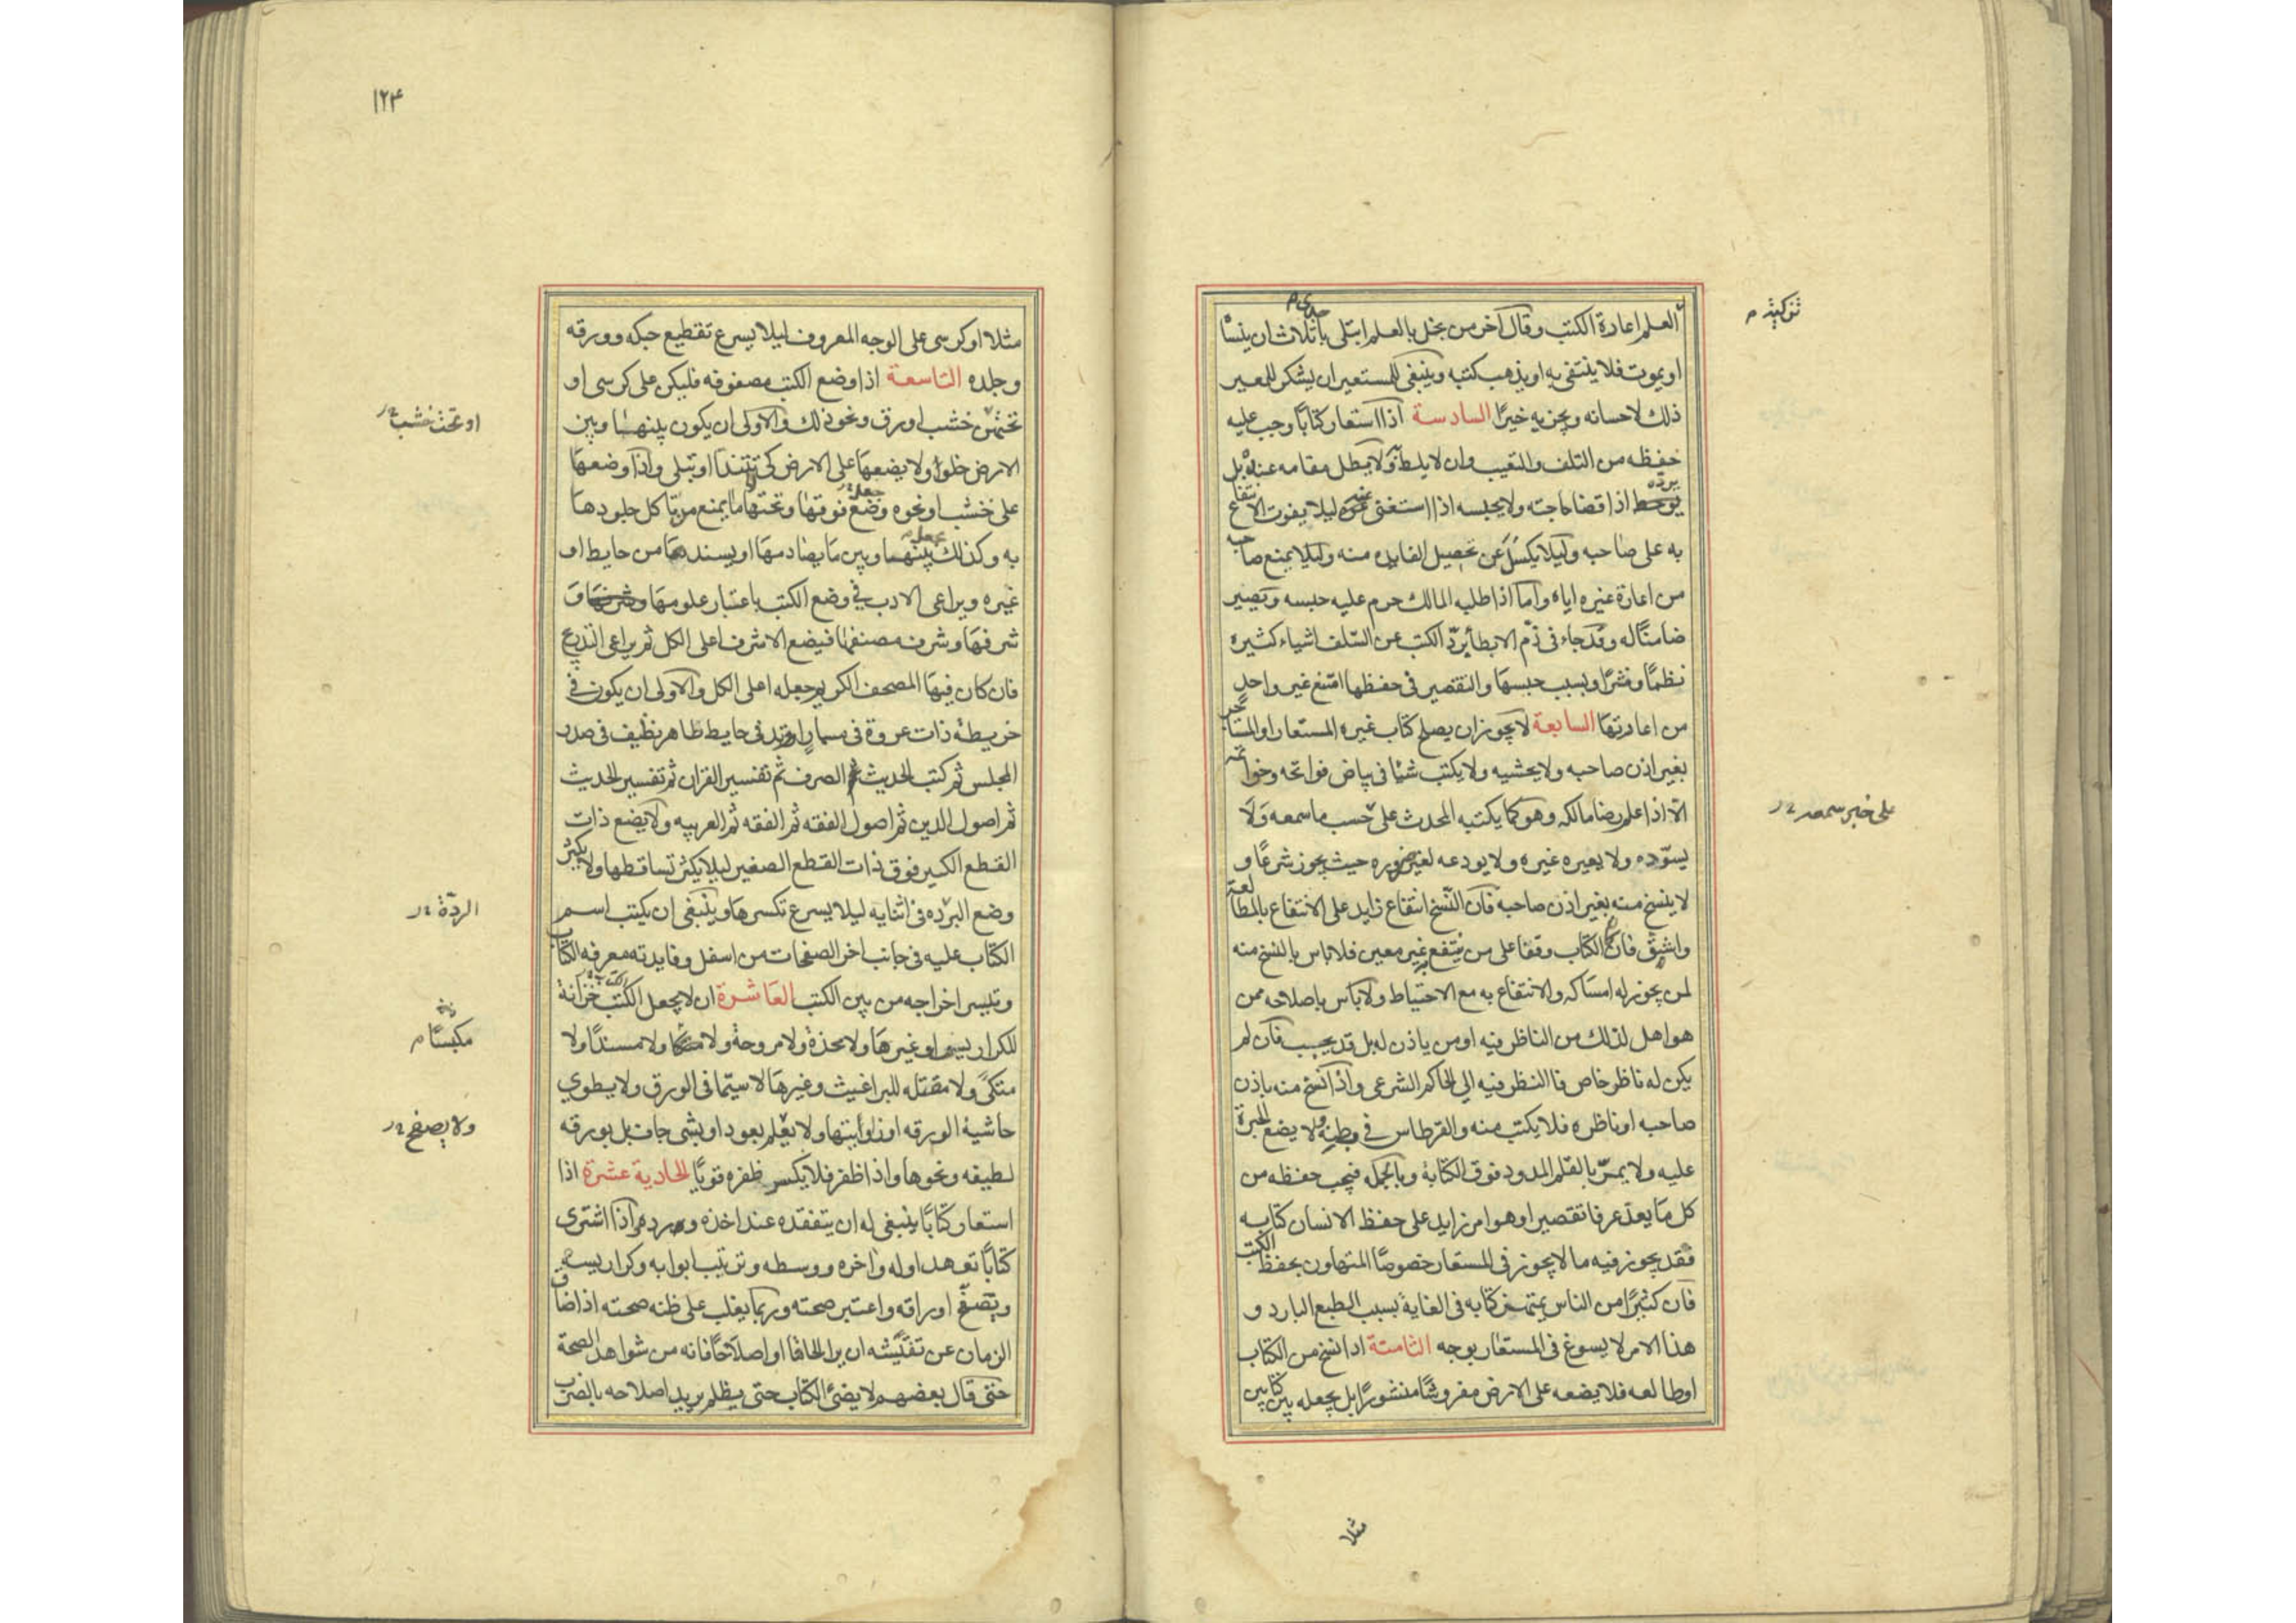 العلم اعادة الكتب وقال آخر من بخل بالعلم ابتلى باحدى ثلاث ان ينساه
او يموت فلا ينتفع به او يذهب كتبه وينبغى للمستعير ان يشكر للمعير
ذلك لاحسانه ويجزيه خيرًا السادسة اذا استعار كتابًا وجب عليه
حفظه من التلف والتعيب وان لا يبطل مقامه عنده بل
يرده اذا قضا حاجته ولا يحبسه اذا استغنى عنه ليلا يفوت الانتفاع
به على صاحبه وليلا يكسل عن تحصيل الفايده منه وليلا يمنع صاحبه
من اعارة غيره اياه واما اذا طلبه المالك حرم عليه حبسه ويصير
ضامنًا له وقد جاء فى ذم الابطا برد الكتب عن السلف اشياء كثيره
نظمًا ونثرًا وبسبب حبسها والتقصير فى حفظها امتنع غير واحد
من اعارتها السابعة لا يجوز ان يصلح كتاب غيره المستعار او المستاجر
بغير اذن صاحبه ولا يحشيه ولا يكتب شيًا فى بياض فواتحه وخواتمه
الا اذا علم رضا مالكه وهو كما يكتبه المحدث على حسب ما سمعه ولا
يسوده ولا يعيره غيره ولا يودعه لغير ضروره حيث يجوز شرعًا و
لا ينسخ منه بغير اذن صاحبه فان النسخ انتفاع زايد على الانتفاع بالمطالعة
واشق فان كان الكتاب وقفا على من ينتفع به غير معين فلا باس بالنسخ منه
لمن يجوز له امساكه والانتفاع به مع الاحتياط ولا باس باصلاحه ممن
هو اهل لذلك من الناظر فيه او من ياذن له بل قد يجب فان لم
يكن له ناظر خاص فا النظر فيه الى الحاكم الشرعى واذا نسخ منه باذن
صاحبه او ناظره فلا يكتب منه والقرطاس فى بطنه ولا يضع المحبرة
عليه ولا يمر بالقلم الممدود فوق الكتابة وبالجمله فيجب حفظه من
كل ما يعد عرفا تقصير او هو امر زايد على حفظ الانسان كتابه
فقد يجوز فيه ما لا يجوز فى المستعار خصوصًا المتهاون بحفظ الكتب
فان كثيرًا من الناس يمتهن كتابه فى الغاية بسبب الطبع البارد و
هذا الامر لا يسوغ فى المستعار بوجه الثامنة اذا نسخ من الكتاب
او طالعه فلا يضعه على الارض مفروشًا منشورًا بل يجعله بين كتابين
على خبر سمعه
مثلا
١٢٤
مثلا او كرسى على الوجه المعروف ليلا يسرع تقطيع حبكه وورقه
وجلده التاسعة اذا وضع الكتب مصفوفه فليكن على كرسى او
تخت خشب او رق ونحو ذلك والاولى ان يكون بينها وبين
الارض خلو ولا يضعها على الارض كى تتندا او تبلى واذا وضعها
على خشب او نحوه جعل فوقها وتحتها ما يمنع من تاكل جلودها
به وكذلك يجعل بينها وبين ما يصادمها او يسندها من حايط او
غيره ويراعى الادب فى وضع الكتب باعتبار علومها و
شرفها وشرف مصنفها فيضع الاشرف اعلى الكل ثم يراعى التدريج
فان كان فيها المصحف الكريم جعله اعلى الكل والاولى ان يكون فى
خريطة ذات عروة فى مسمار او وتد فى حايط طاهر نظيف فى صدر
المجلس ثم كتب الحديث الصرف ثم تفسير القران ثم تفسير الحديث
ثم اصول الدين ثم اصول الفقه ثم الفقه ثم العربيه ولا يضع ذات
القطع الكبير فوق ذات القطع الصغير ليلا يكثر تساقطها ولا يكثر
وضع الرده فى اثنايه ليلا يسرع تكسرها وينبغى ان يكتب اسم
الكتاب عليه فى جانب اخر الصفحات من اسفل وفايدته معرفه الكتاب
وتيسر اخراجه من بين الكتب العاشرة ان لا يجعل الكتاب خزانة
للكراريس او غيرها ولا مخدة ولا مروحة ولا ولا مسندًا ولا
متكئ ولا مقتله للبراغيث وغيرها لا سيما فى الورق ولا يطوى
حاشية الورقه او زوايتها ولا يعلم بعود او بشى جاف بل بورقه
لطيفه ونحوها واذا ظفر فلا يكسر ظفره قويًا الحادية عشرة اذا
استعار كتابًا ينبغى له ان يتفقده عند اخذه ورده واذا اشترى
كتابًا تعهد اوله واخره ووسطه وترتيب ابوابه وكراريسه
وتصفح اوراقه واعتبر صحته وربما يغلب على ظنه صحته اذا ضاق
الزمان عن تفتيشه ان يرا الحاقا او اصلاحًا فانه من شواهد الصحة
حتى قال بعضهم لا يضئ الكتاب حتى يظلم يريد اصلاحه بالضرب
او تخت خشب
الردّة
مكبسًا